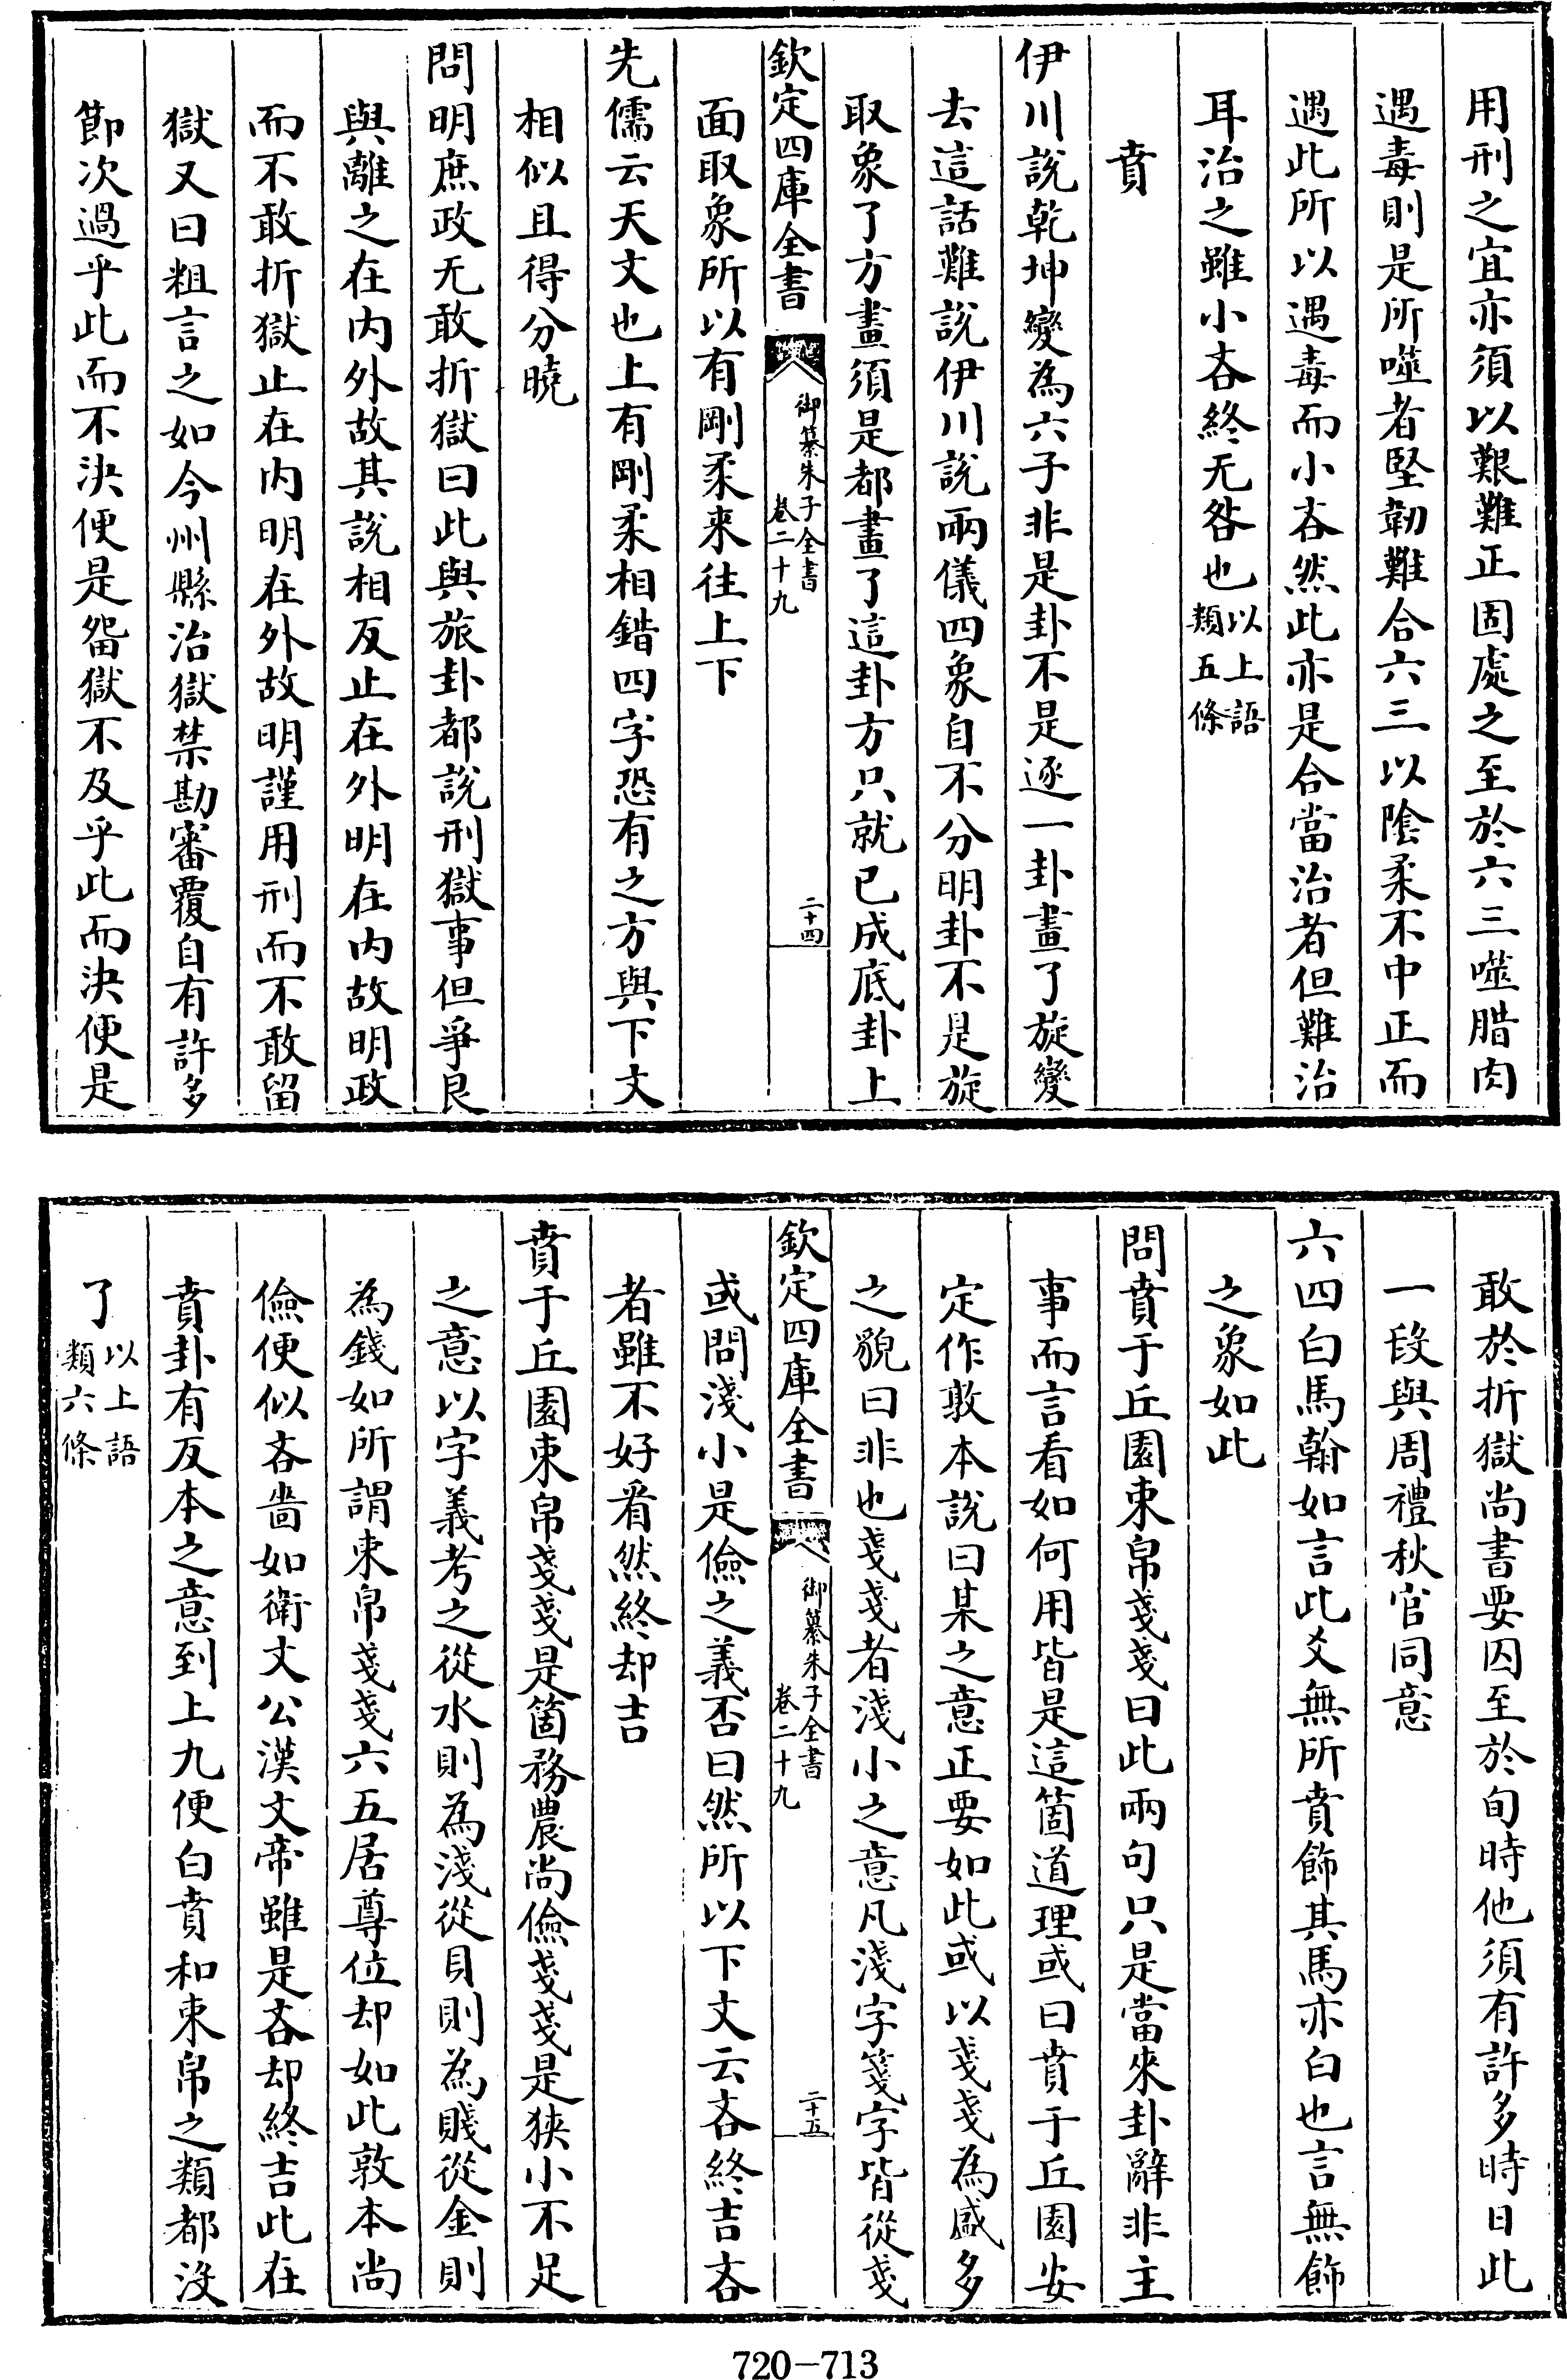 用刑之宜亦須以艱難正固處之至於六三噬腊肉
遇毒則是所噬者堅韌難合六三以陰柔不中正而
遇此所以遇毒而小吝然此亦是合當治者但難治
耳治之雖小吝終无咎也以上語類五條
賁
伊川說乾坤變為六子非是卦不是逐一卦畫了旋變
去這話難說伊川說兩儀四象自不分明卦不是旋
取象了方畫須是都畫了這卦方只就已成底卦上
欽定四庫全書
御纂朱子全書
卷二十九
二十四
面取象所以有剛柔來往上下
先儒云天文也上有剛柔相錯四字恐有之方與下文
相似且得分曉
問明庶政无敢折獄曰此與旅卦都說刑獄事但爭艮
與離之在内外故其說相反止在外明在内故明政
而不敢折獄止在内明在外故明謹用刑而不敢留
獄又曰粗言之如今州縣治獄禁勘審覆自有許多
節次過乎此而不決便是畱獄不及乎此而決便是
敢於折獄尚書要囚至於旬時他須有許多時日此
一段與周禮秋官同意
六四白馬翰如言此爻無所賁飾其馬亦白也言無飾
之象如此
問賁于丘園束帛戔戔曰此兩句只是當來卦辭非主
事而言看如何用皆是這箇道理或曰賁于丘園安
定作敦本說曰某之意正要如此或以戔戔為盛多
之貌曰非也戔戔者淺小之意凡淺字箋字皆從戔
欽定四庫全書
御纂朱子全書
卷二十九
二十五
或問淺小是儉之義否曰然所以下文云吝終吉吝
者雖不好看然終却吉
賁于丘園束帛戔戔是箇務農尚儉戔戔是狹小不足
之意以字義考之從水則為淺從貝則為賤從金則
為錢如所謂束帛戔戔六五居尊位却如此敦本尚
儉便似吝嗇如衛文公漢文帝雖是吝却終吉此在
賁卦有反本之意到上九便白賁和束帛之類都沒
了以上語類六條
720-713